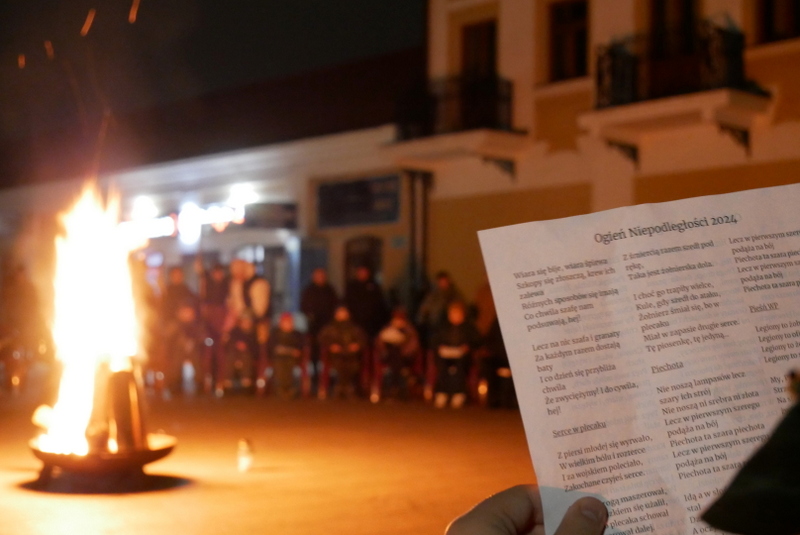 Ogień Niepodległości 2024
Wiara się bije, wiara śpiewa
Szkopy się złoszczą, krew ich
zalewa
Różnych sposobów się imają
Co chwila szafą nam
podsuwają, hej!
Lecz na nic szafa i granaty
Za każdym razem dostają
baty
I co dzień się przybliża
chwila
Że zwyciężymy! I do cywila,
hej!
Serce w plecaku
Z piersi młodej się wyrwało,
W wielkim bólu i rozterce
I za wojskiem poleciało,
Zakochane czyjeś serce.
maszerował,
się użalił,
plecaka schował
dalej.
Z śmiercią razem szedł pod
rękę,
Taka jest żołnierska dola.
I choć go trapiły wielce,
Kule, gdy szedł do ataku,
Żołnierz śmiał się, bo w
plecaku
Miał w zapasie drugie serce.
Tę piosenkę, tę jedyną...
Piechota
Nie noszą lampasów lecz
szary ich strój
Nie noszą ni srebra ni złota
Lecz w pierwszym szeregu
podąża na bój
Piechota ta szara piechota
Lecz w pierwszym szeregu
podąża na bój
Piechota ta szara
Idą a w
stal
Lecz w pierwszym
podąża na bój
Piechota ta szara
Lecz w pierwszym
podąża na bój
Piechota ta szara
Legiony to
Legiony to
Legiony to
Legiony to
My,